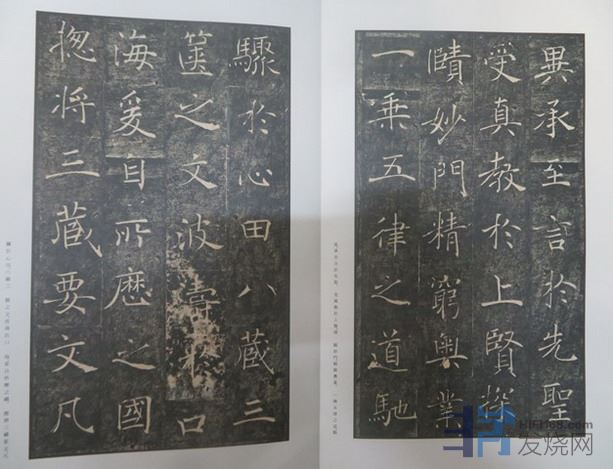 異承至言於先聖
受真教於上賢探
賾妙門精窮奥業
一乘五律之道馳
驟於心田八藏三
篋之文波濤於口
海爰自所歷之國
揔将三藏要文凡
HIFI168.com
发烧网